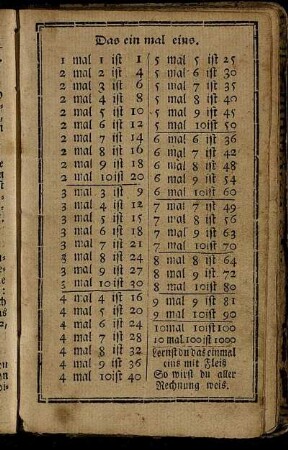 Das ein mal eins.
1 mal 1 ist 1
2 mal 2 ist 4
2 mal 3 ist 6
2 mal 4 ist 8
2 mal 5 ist 10
2 mal 6 ist 12
2 mal 7 ist 14
2 mal 8 ist 16
2 mal 9 ist 18
2 mal 10ist 20
3 mal 3 ist 9
3 mal 4 ist 12
3 mal 5 ist 15
3 mal 6 ist 18
3 mal 7 ist 21
3 mal 8 ist 24
3 mal 9 ist 27
3 mal 10ist 30
4 mal 4 ist 16
4 mal 5 ist 20
4 mal 6 ist 24
4 mal 7 ist 28
4 mal 8 ist 32
4 mal 9 ist 36
4 mal 10ist 40
5 mal 5 ist 25
5 mal 6 ist 30
5 mal 7 ist 35
5 mal 8 ist 40
5 mal 9 ist 45
5 mal 10ist 50
6 mal 6 ist 36
6 mal 7 ist 42
6 mal 8 ist 48
6 mal 9 ist 54
6 mal 10ist 60
7 mal 7 ist 49
7 mal 8 ist 56
7 mal 9 ist 63
7 mal 10ist 70
8 mal 8 ist 64
8 mal 9 ist 72
8 mal 10ist 80
9 mal 9 ist 81
9 mal 10ist 90
10mal 10ist100
10mal100ist 1000
Lernst du das einmal
eins mit Fleis
So wirst du aller
Rechnung weis.